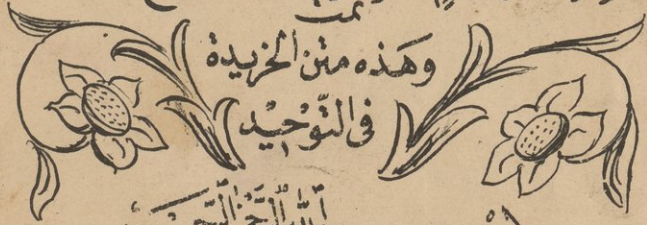 تمت
وهذه متن الخريدة
فى التّوحيد